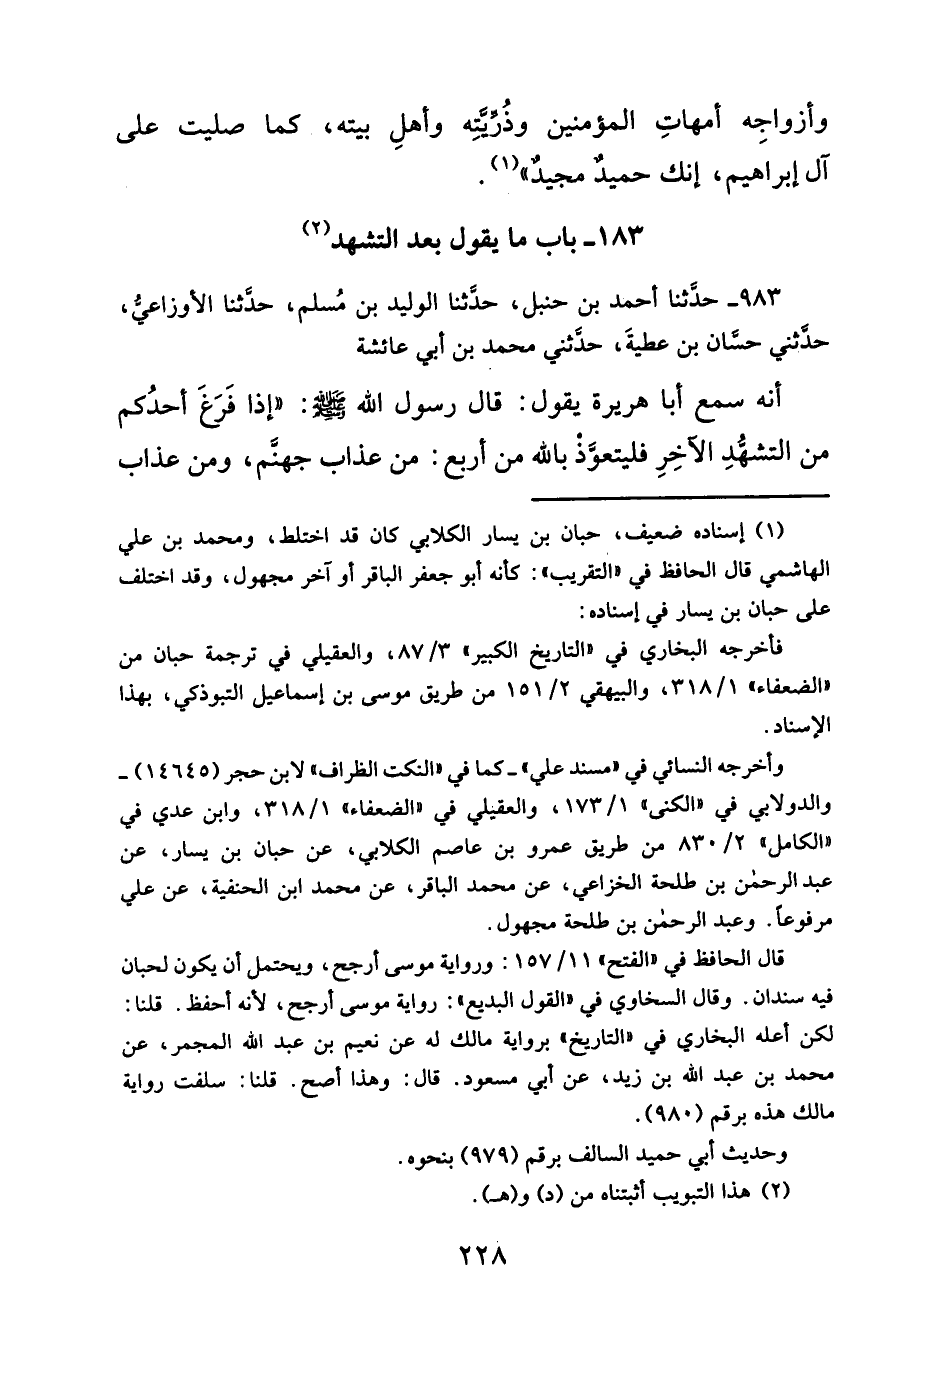 وأزواجِه أمهاتِ المؤمنين وذُرِّيَّتِه وأهلِ بيته، كما صليت على
آل إبراهيم، إنك حميدٌ مجيدٌ»(١).
١٨٣ـ باب ما يقول بعد التشهد(٢)
٩٨٣ـ حدَّثنا أحمد بن حنبل، حدَّثنا الوليد بن مُسلم، حدَّثنا الأوزاعيُّ،
حدَّثني حسَّان بن عطيةَ، حدَّثني محمد بن أبي عائشة
أنه سمع أبا هريرة يقول: قال رسول الله ﷺ: «إذا فَرَغَ أحدُكم
من التشهُّدِ الآخِرِ فليتعوَّذْ بالله من أربع: من عذاب جهنَّم، ومن عذاب
(١) إسناده ضعيف، حبان بن يسار الكلابي كان قد اختلط، ومحمد بن علي
الهاشمي قال الحافظ في «التقريب»: كأنه أبو جعفر الباقر أو آخر مجهول، وقد اختلف
على حبان بن يسار في إسناده:
فأخرجه البخاري في «التاريخ الكبير» ٣/ ٨٧، والعقيلي في ترجمة حبان من
«الضعفاء» ١/ ٣١٨، والبيهقي ٢/ ١٥١ من طريق موسى بن إسماعيل التبوذكي، بهذا
الإسناد.
وأخرجه النسائي في «مسند علي» ـ كما في «النكت الظراف» لابن حجر (١٤٦٤٥) ـ
والدولابي في «الكنى» ١/ ١٧٣، والعقيلي في «الضعفاء» ١/ ٣١٨، وابن عدي في
«الكامل» ٢/ ٨٣٠ من طريق عمرو بن عاصم الكلابي، عن حبان بن يسار، عن
عبد الرحمٰن بن طلحة الخزاعي، عن محمد الباقر، عن محمد ابن الحنفية، عن علي
مرفوعاً. وعبد الرحمٰن بن طلحة مجهول.
قال الحافظ في «الفتح» ١١/ ١٥٧: ورواية موسى أرجح، ويحتمل أن يكون لحبان
فيه سندان. وقال السخاوي في «القول البديع»: رواية موسى أرجح، لأنه أحفظ. قلنا:
لكن أعله البخاري في «التاريخ» برواية مالك له عن نعيم بن عبد الله المجمر، عن
محمد بن عبد الله بن زيد، عن أبي مسعود. قال: وهذا أصح. قلنا: سلفت رواية
مالك هذه برقم (٩٨٠).
وحديث أبي حميد السالف برقم (٩٧٩) بنحوه.
(٢) هذا التبويب أثبتناه من (د) و(هـ).
٢٢٨